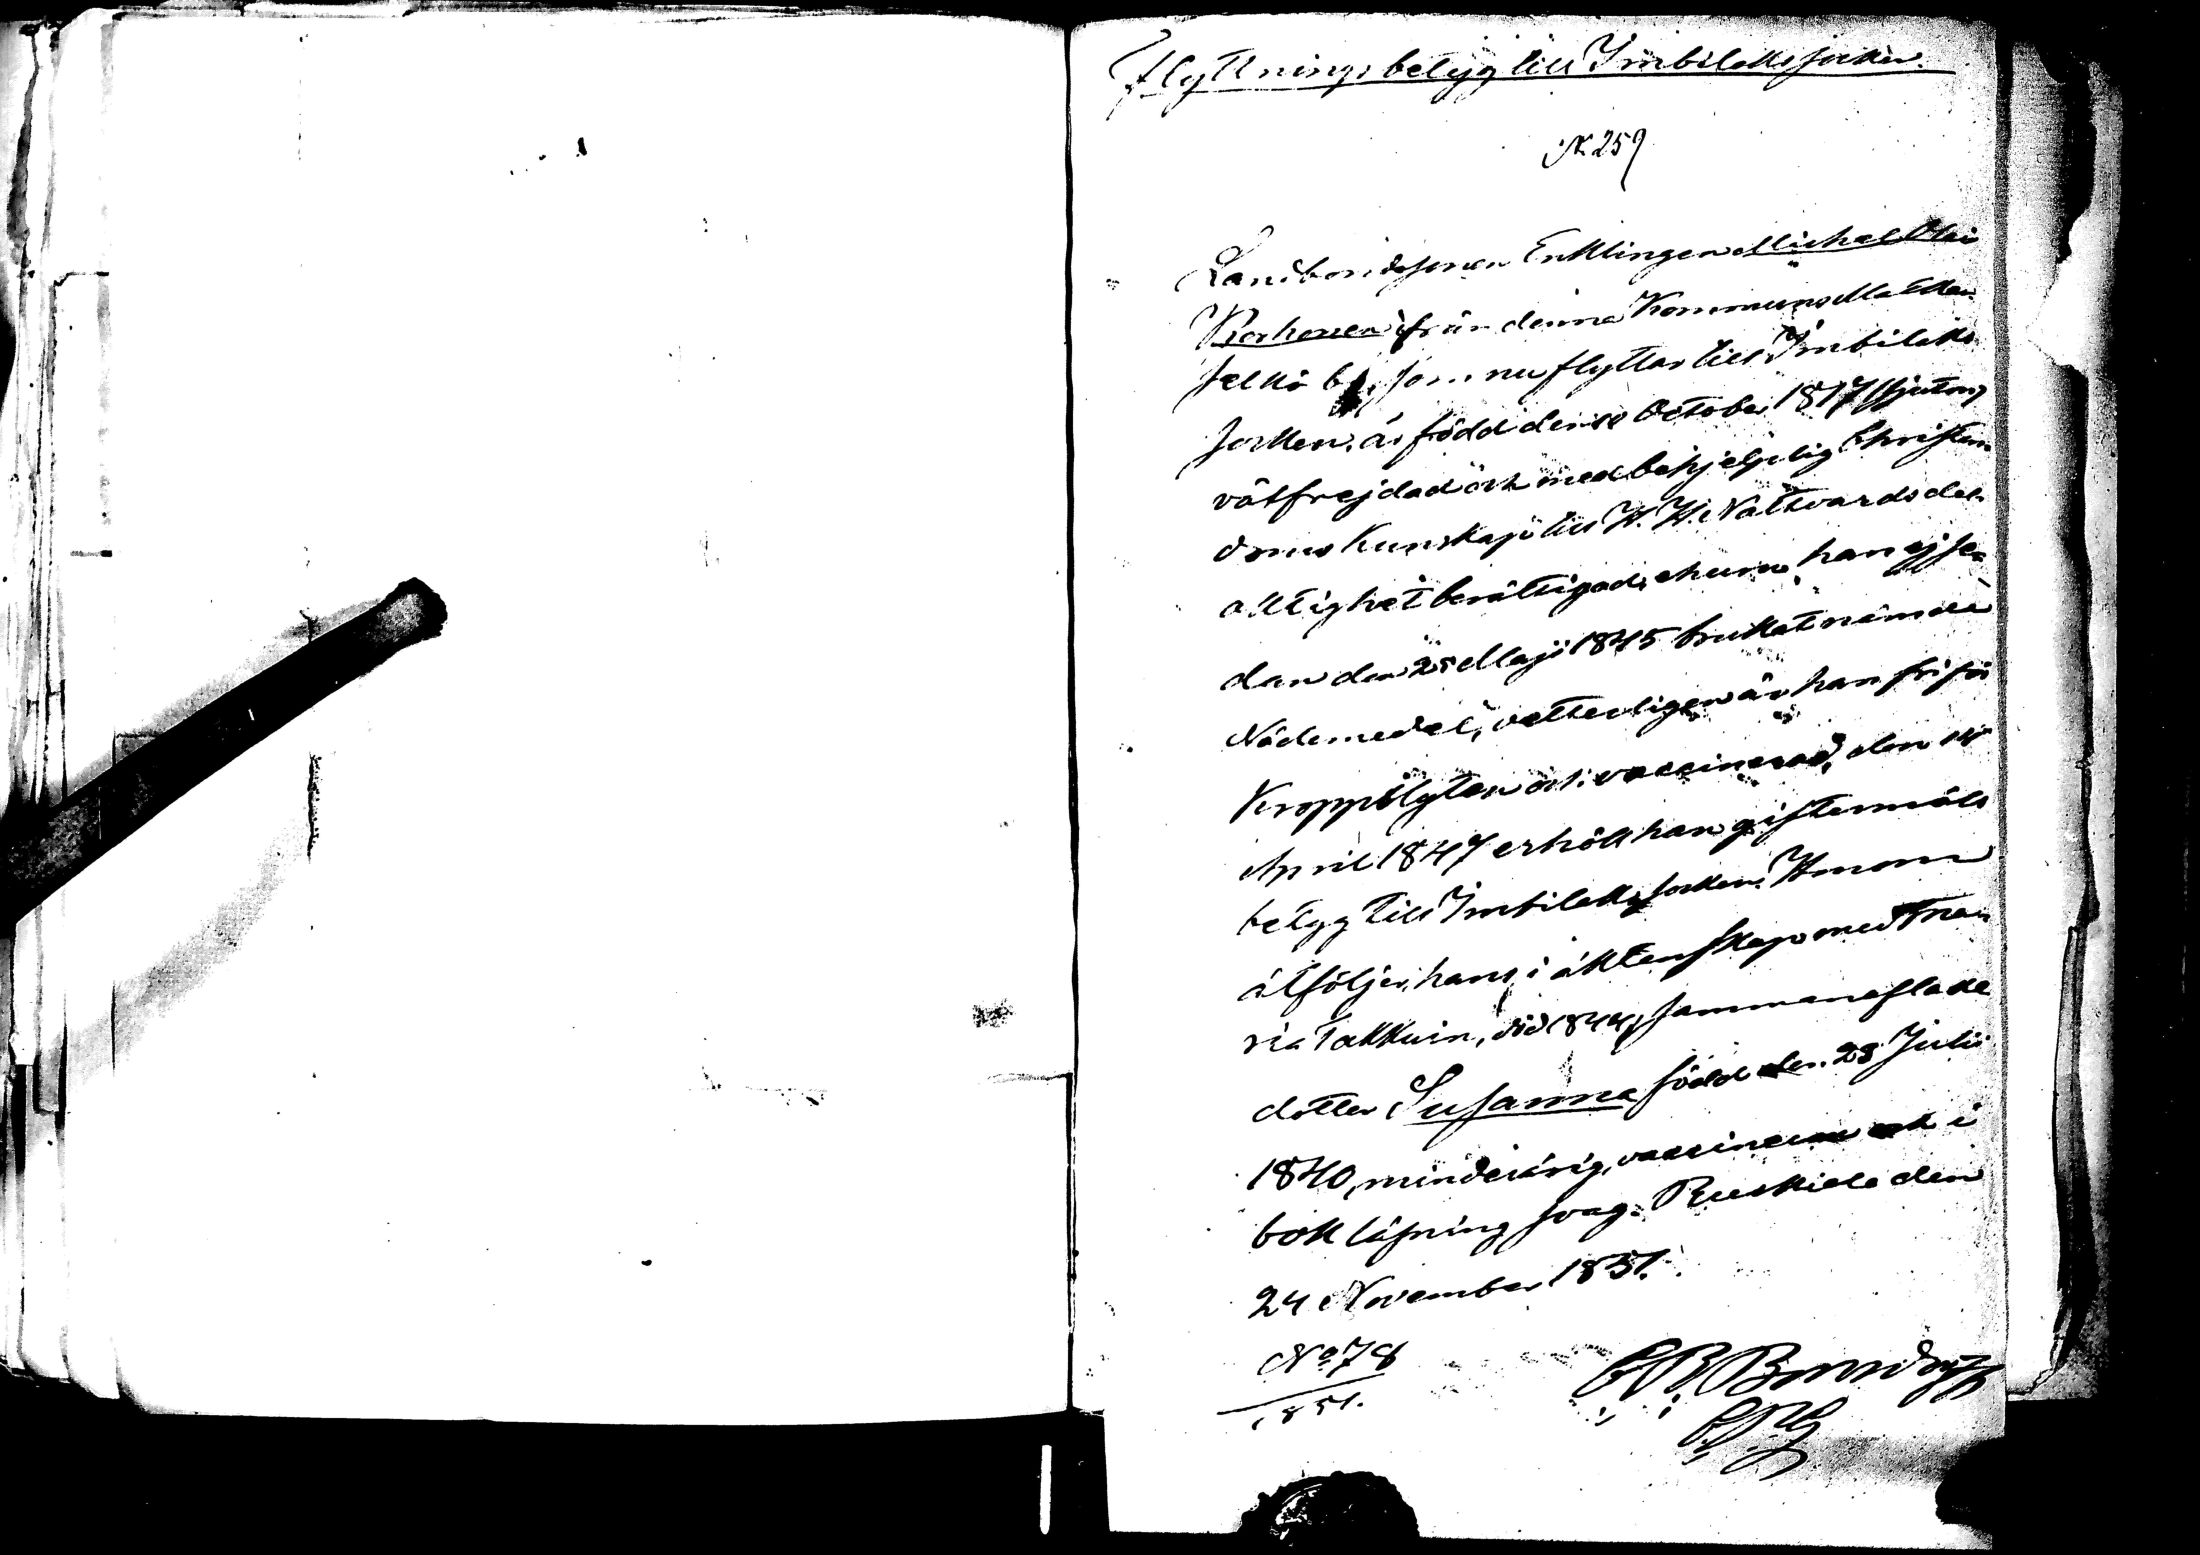 Flyttningsbetyg till Imbilaks socken.
N. 259
Landbondesonen Enklingen Michel Olai
Korhonen från denna Kommuns Matka
selkä by, som nu flyttar till Imbilaks
socken, är född den 10 October 1817 (sjuton)
vätfrejdad och med behjelpelig Christen
doms kunskap till H. H. Nattvards del
aktighet berättigad, ehuru han ej se
dan den 25 Maji 1845 brukat nämnde
Nådemedel, vetterligen är han fri för
Kroppslyten och vaccinerad, den 14
April 1847 erhöll han giftermåls
betyg till Imbilaks socken. Honom
åtföljer hans i äktenskap med Ma
ria Takkuin, död 1844, sammanaflade
dotter Susanna född den 28 Julii
1840, minderårig, vaccinerad och i
bokläsning svag. Ruskiala den
24 November 1851.
No 78
1851.